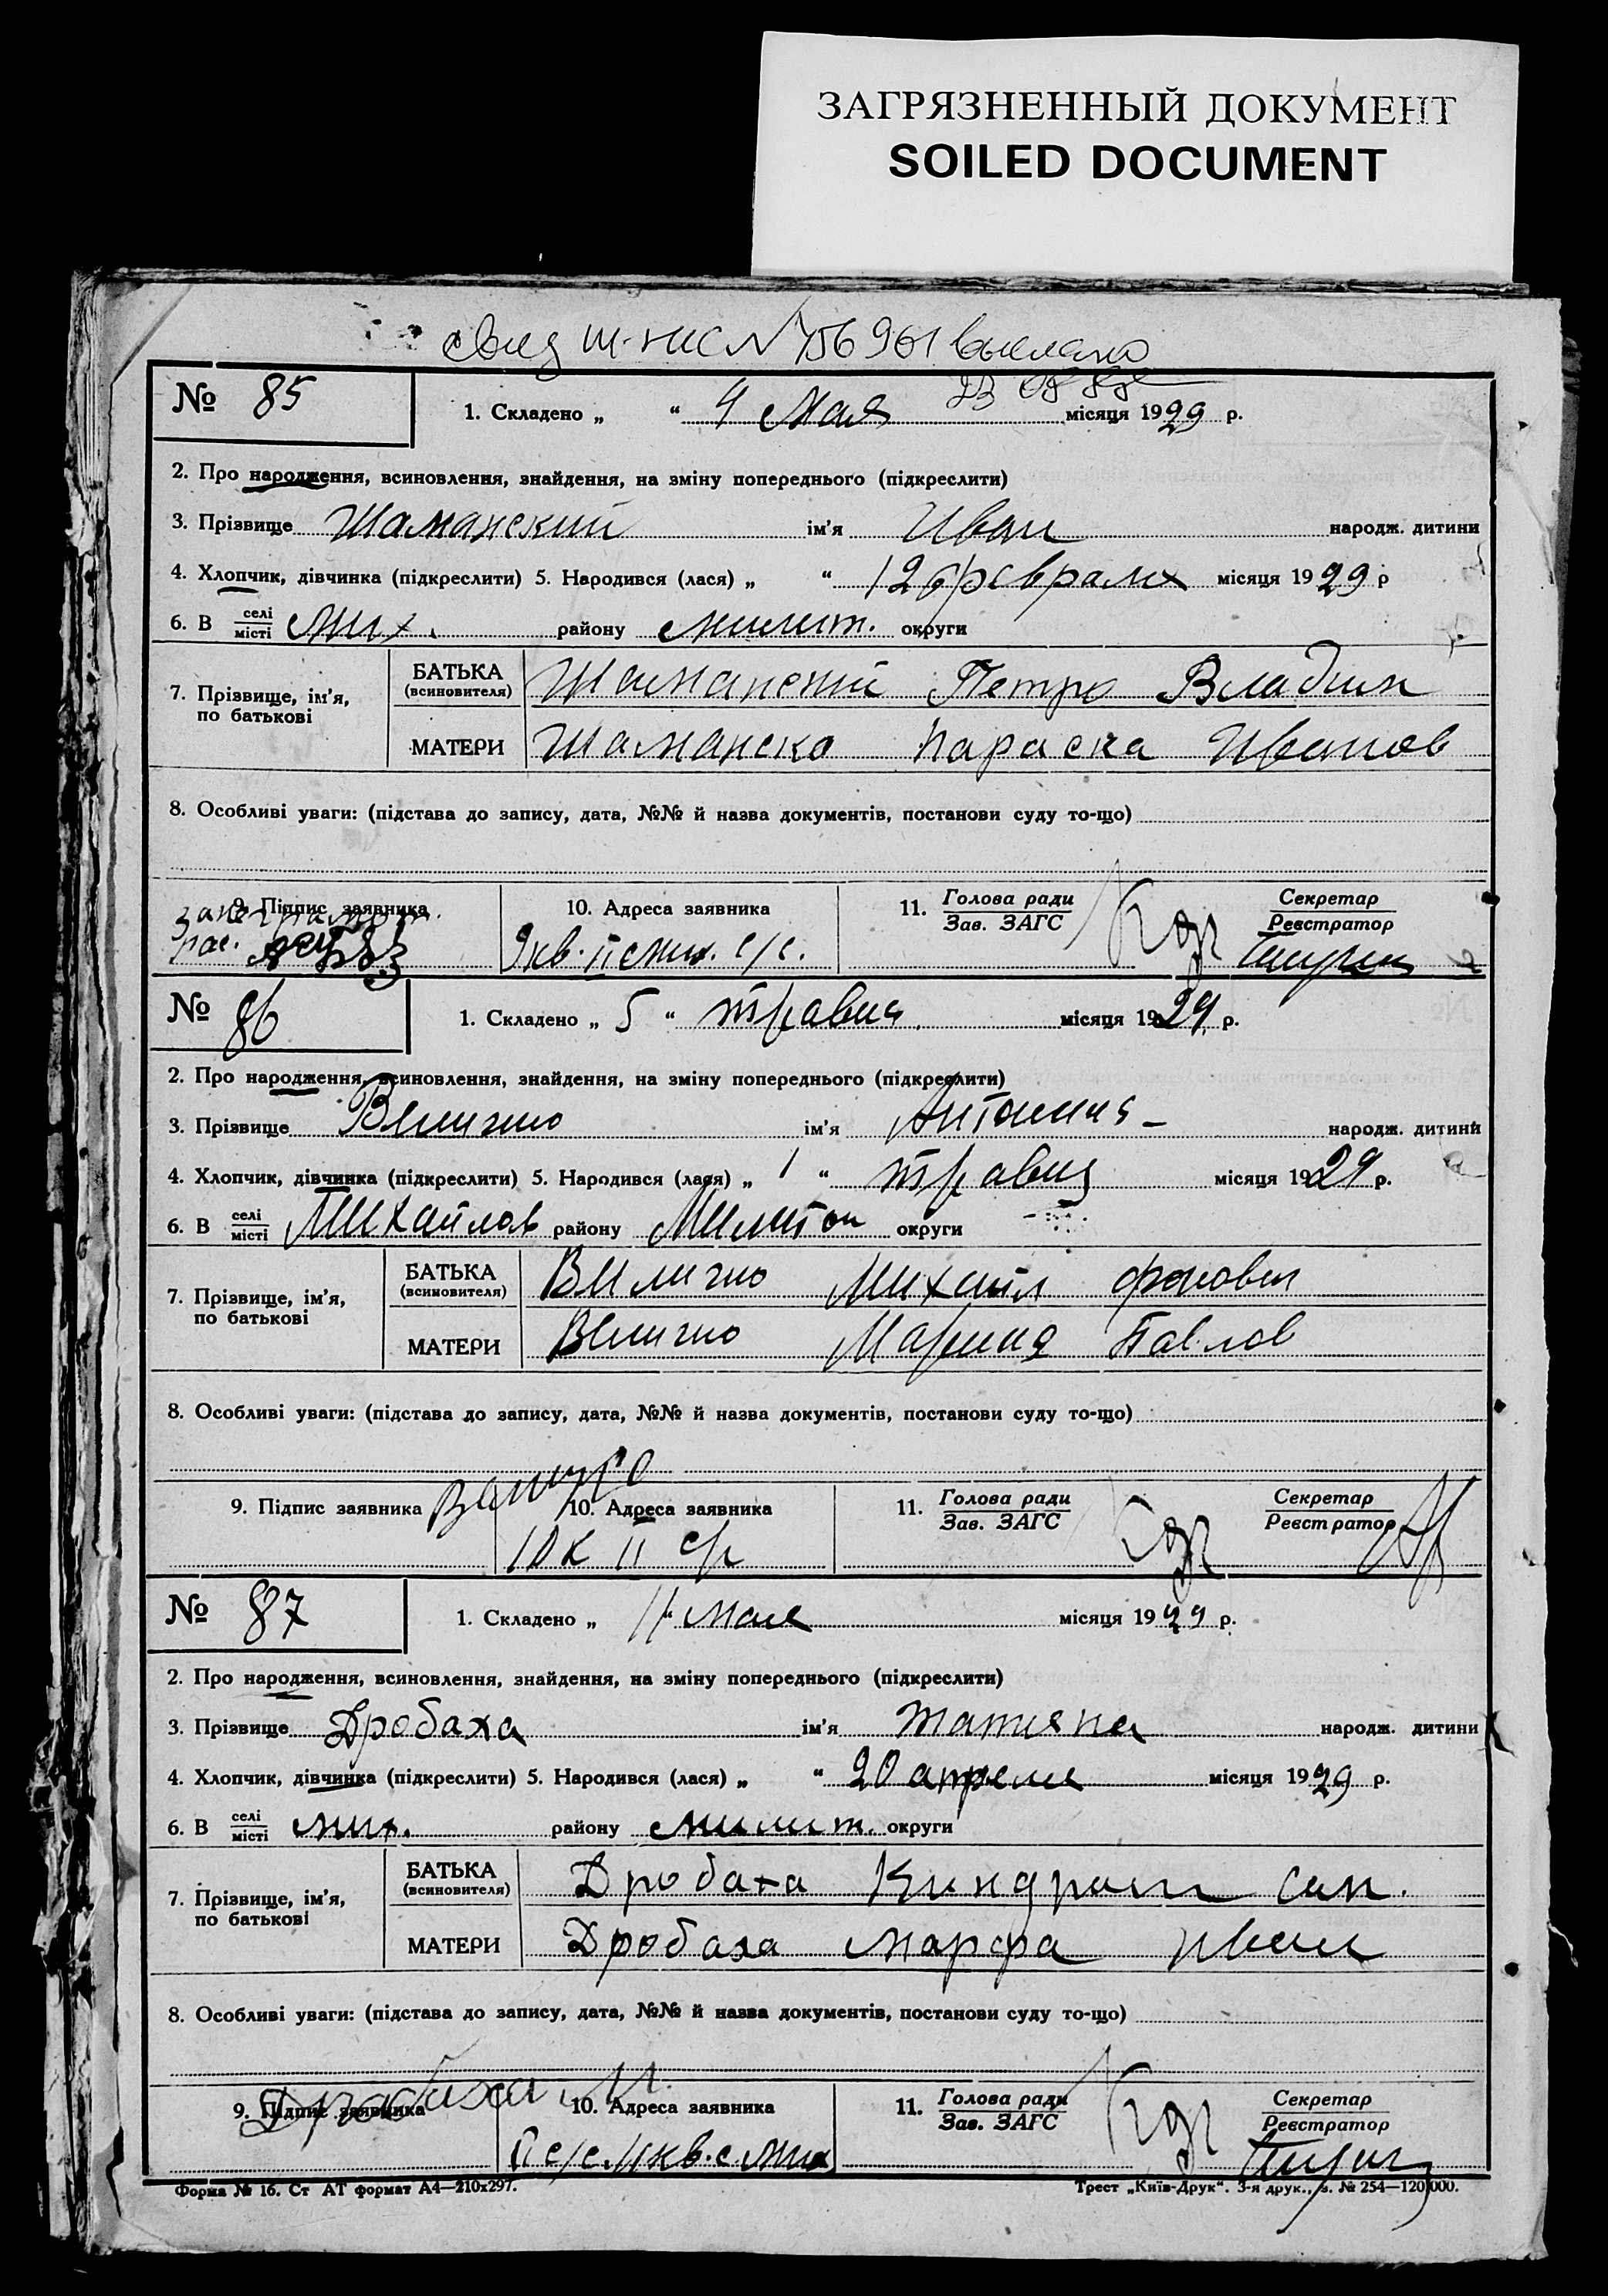 ЗАГРЯЗНЕННЫЙ ДОКУМЕНТ
SOILED DOCUMENT
№ 756961
№ 85 1. Складено „ “ 4 Мая місяця 1929 р.
2. Про народження, всиновлення, знайдення, на зміну попереднього (підкреслити)
3. Прізвище Шаманский ім'я Иван народж. дитини
4. Хлопчик, дівчинка (підкреслити) 5. Народився (лася) „ “ 12 февраля місяця 1929 р
6. В селі/місті Мих. району Мелит. округи
7. Прізвище, ім'я, по батькові
БАТЬКА (всиновителя) Шаманский Петро Владим
МАТЕРИ Шаманска Параска Иванов
8. Особливі уваги: (підстава до запису, дата, №№ й назва документів, постанови суду то-що)
9. Підпис заявника 10. Адреса заявника 11. Голова ради/Зав. ЗАГС Секретар/Реєстратор
9 кв. II с/с.
№ 86 1. Складено „ 5 “ травня місяця 1929 р.
2. Про народження, всиновлення, знайдення, на зміну попереднього (підкреслити)
3. Прізвище Величко ім'я Антонина народж. дитини
4. Хлопчик, дівчинка (підкреслити) 5. Народився (лася) „ 1 “ травня місяця 1929 р.
6. В селі/місті Михайлов району Мелитоп округи
7. Прізвище, ім'я, по батькові
БАТЬКА (всиновителя) Величко Михаил
МАТЕРИ Величко Мария Павлов
8. Особливі уваги: (підстава до запису, дата, №№ й назва документів, постанови суду то-що)
9. Підпис заявника 10. Адреса заявника 11. Голова ради/Зав. ЗАГС Секретар/Реєстратор
10 к II с/р
№ 87 1. Складено „ 11 “ мая місяця 1929 р.
2. Про народження, всиновлення, знайдення, на зміну попереднього (підкреслити)
3. Прізвище Дробаха ім'я Татяна народж. дитини
4. Хлопчик, дівчинка (підкреслити) 5. Народився (лася) „ “ 20 апреля місяця 1929 р.
6. В селі/місті Мих. району Мелит. округи
7. Прізвище, ім'я, по батькові
БАТЬКА (всиновителя) Дробаха Киндрат Сам.
МАТЕРИ Дробаха Марфа Иван
8. Особливі уваги: (підстава до запису, дата, №№ й назва документів, постанови суду то-що)
Дробаха М.
9. Підпис заявника 10. Адреса заявника 11. Голова ради/Зав. ЗАГС Секретар/Реєстратор
II с/с 11 кв. с. Мих
Форма № 16. Ст АТ формат А4—210х297. Трест „Київ-Друк“. 3-я друк., з. № 254—120.000.